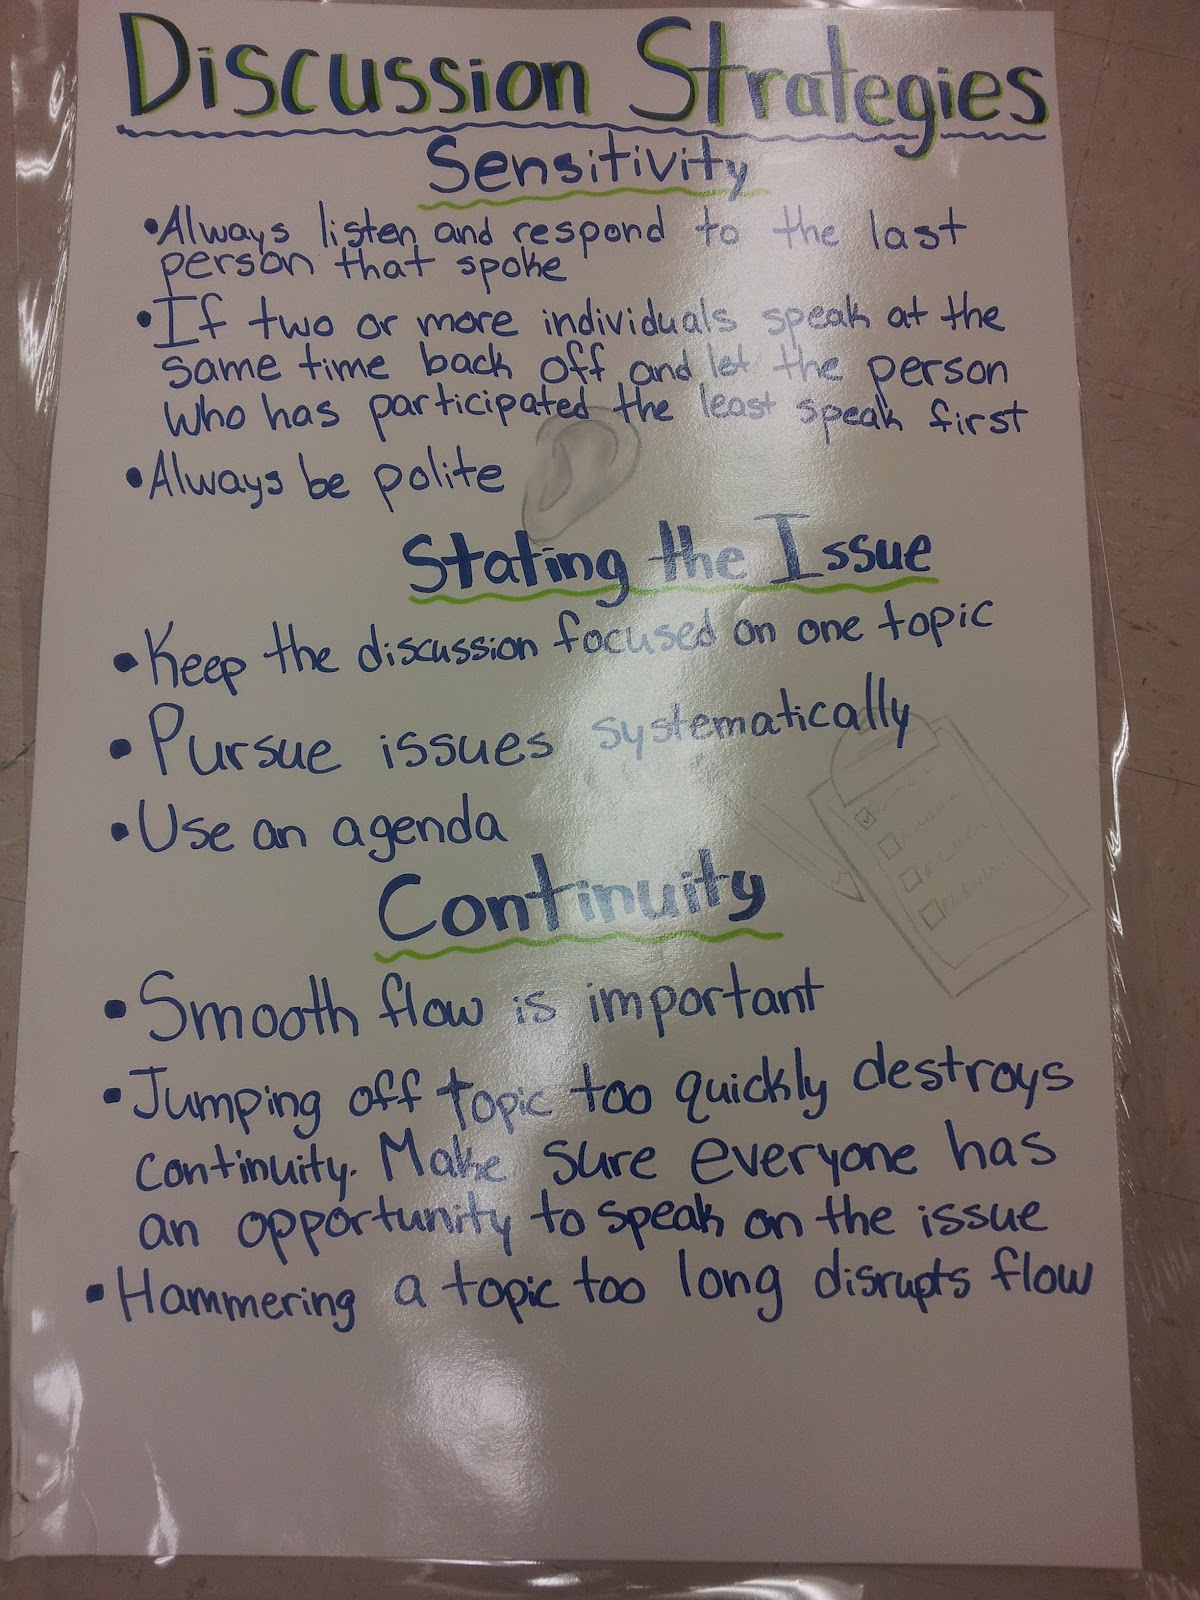 Discussion Strategies
Sensitivity
• Always listen and respond to the last
person that spoke
• If two or more individuals speak at the
same time back off and let the person
who has participated the least speak first
• Always be polite
Stating the Issue
• Keep the discussion focused on one topic
• Pursue issues systematically
• Use an agenda
Continuity
• Smooth flow is important
• Jumping off topic too quickly destroys
continuity. Make sure everyone has
an opportunity to speak on the issue
• Hammering a topic too long disrupts flow